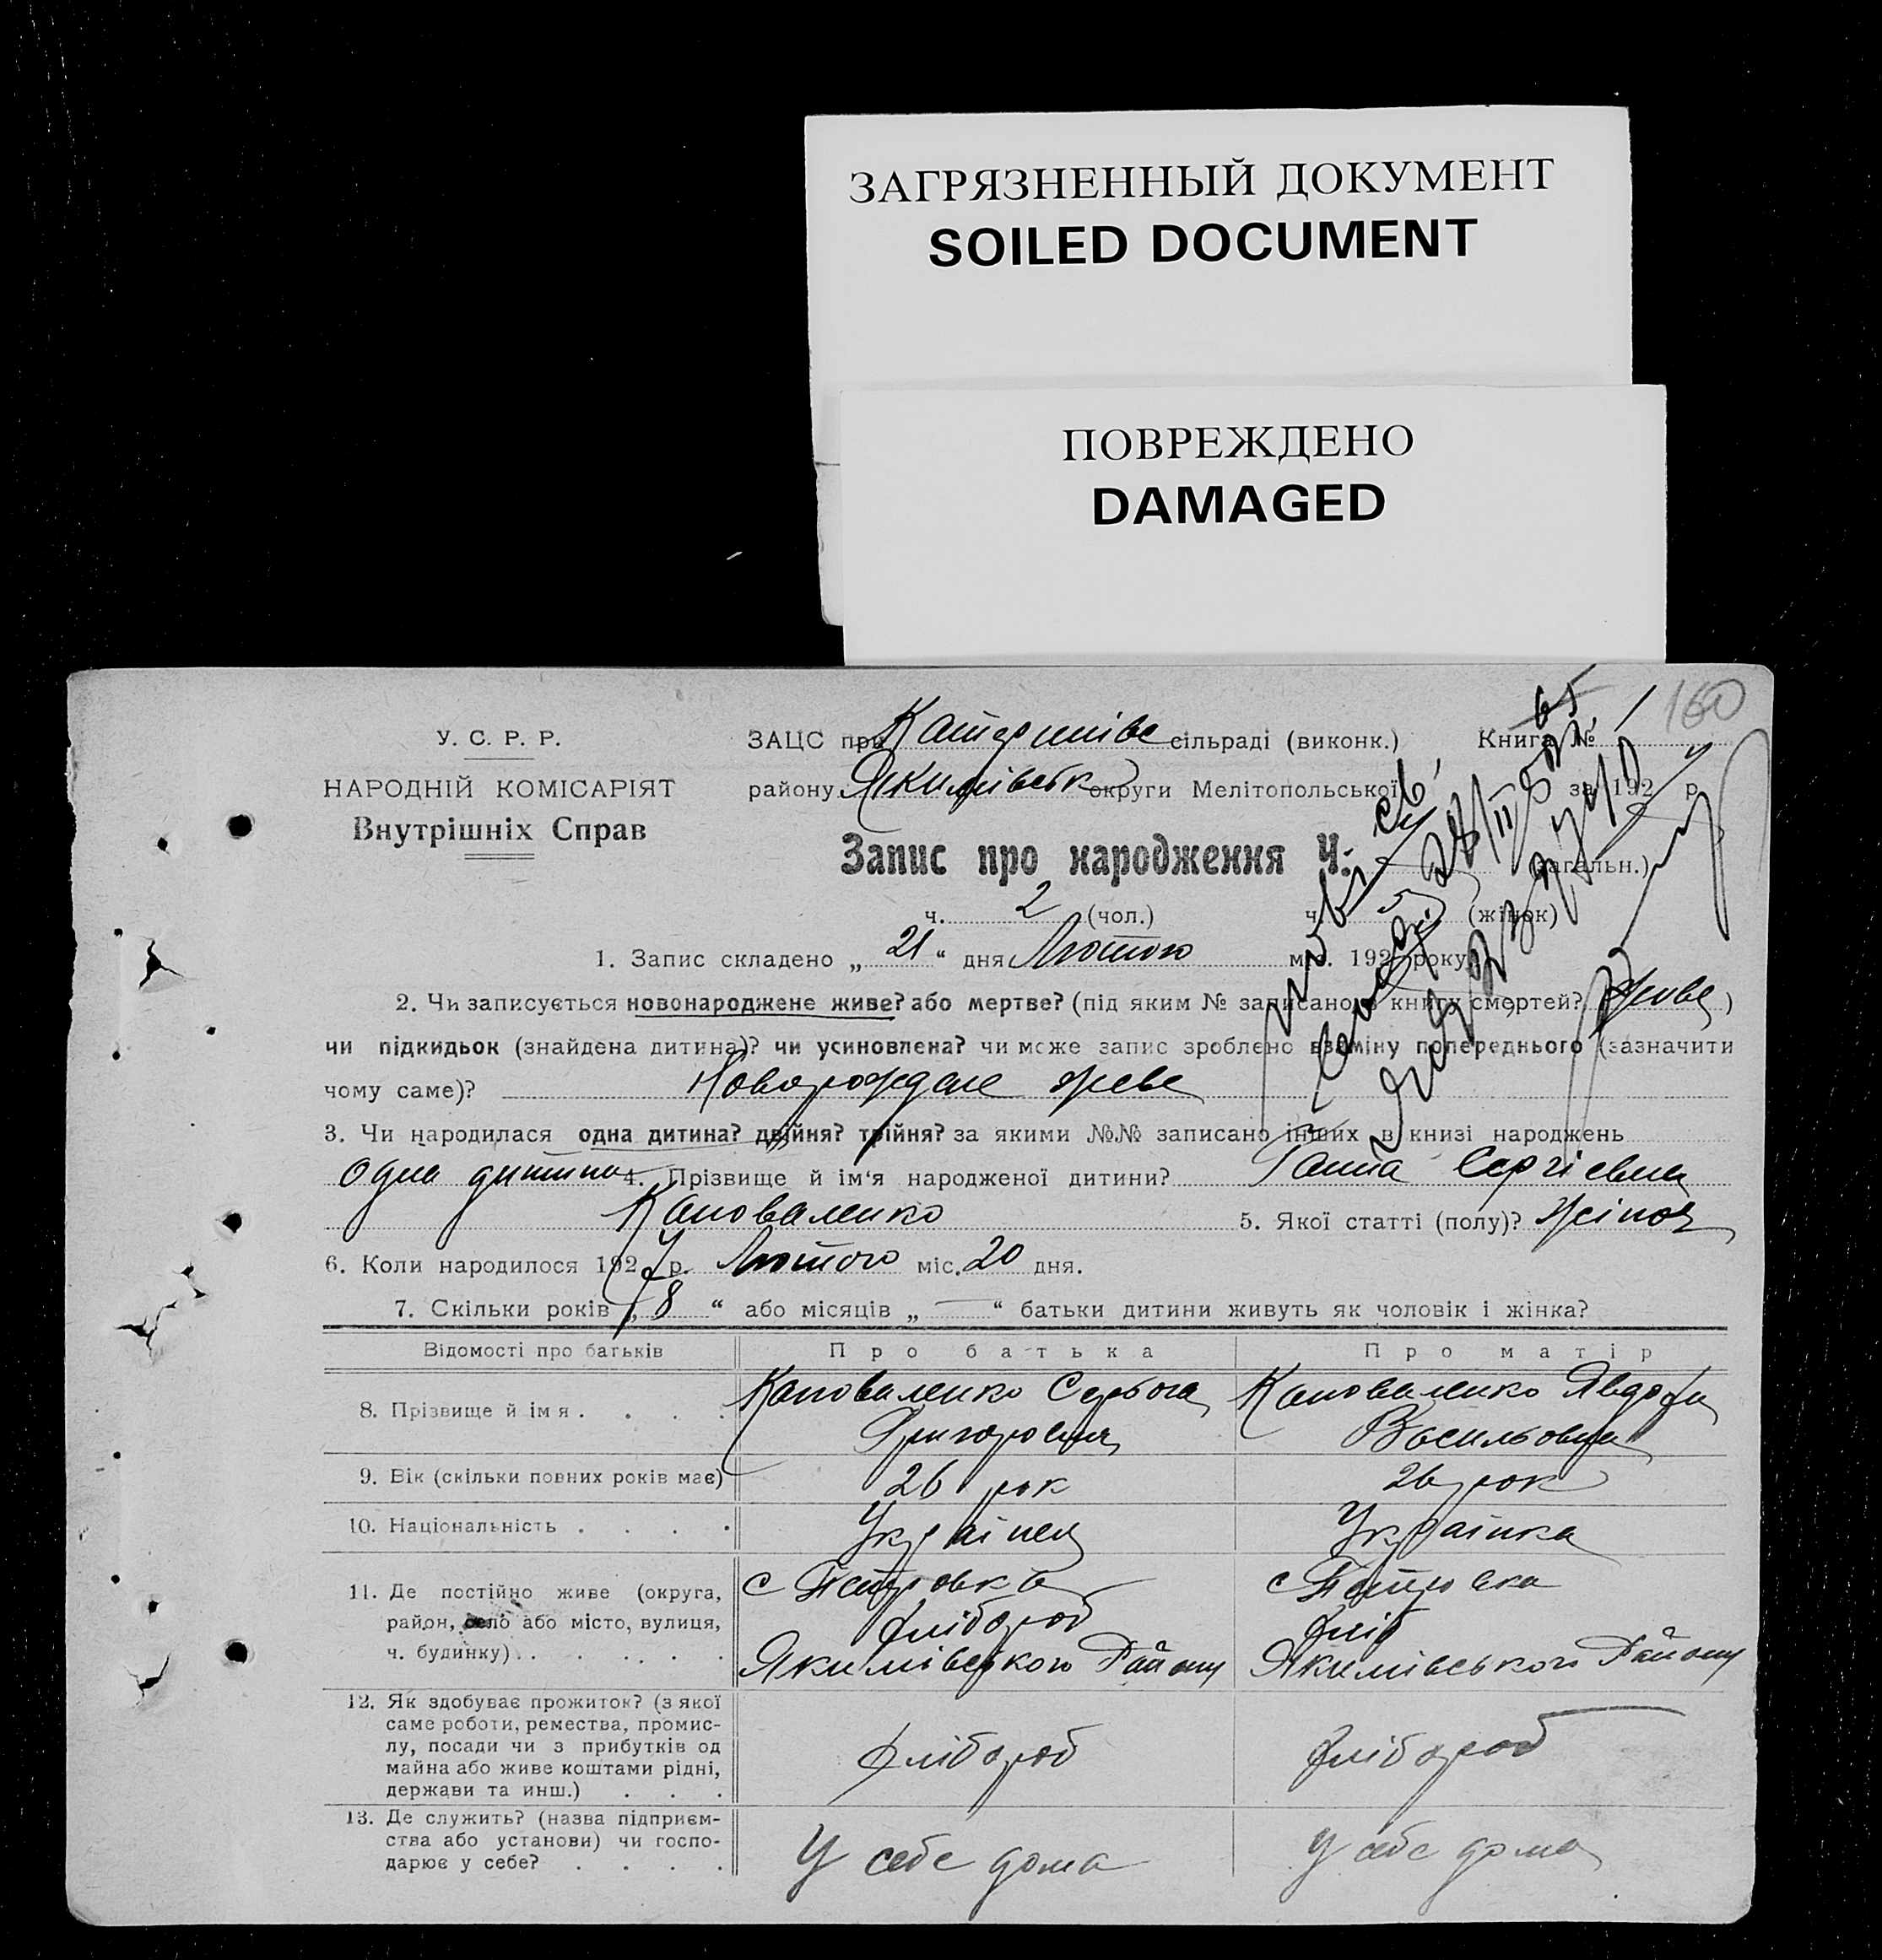 ЗАГРЯЗНЕННЫЙ ДОКУМЕНТ
SOILED DOCUMENT
ПОВРЕЖДЕНО
DAMAGED
160
У. С. Р. Р.
НАРОДНІЙ КОМІСАРІЯТ
Внутрішніх Справ
ЗАЦС при сільраді (виконк.) Книга №
району Якимівськ округи Мелітопольської за 192 р.
Запис про народження Ч. (загальн.)
ч. 2 (чол.) ч. 5 (жінок)
1. Запис складено „ 21 “ дня Лютого міс. 192 року
2. Чи записується новонароджене живе? або мертве? (під яким № записано в книгу смертей? живе)
чи підкидьок (знайдена дитина)? чи усиновлена? чи може запис зроблено взаміну попереднього (зазначити
чому саме)? живе
3. Чи народилася одна дитина? двійня? трійня? за якими №№ записано інших в книзі народжень
одна дитина 4. Прізвище й ім‘я народженої дитини? Ганна Сергієвна
Коноваленко 5. Якої статті (полу)? жіноч
6. Коли народилося 192 р. Лютого міс. 20 дня.
7. Скільки років „ 8 “ або місяців „ — “ батьки дитини живуть як чоловік і жінка?
Відомості про батьків Про батька Про матір
8. Прізвище й імя . . . . Коноваленко Коноваленко
9. Вік (скільки повних років має) 26 рок 26 рок
10. Національність . . . . Українец Українка
11. Де постійно живе (округа,
район, село або місто, вулиця,
ч. будинку) . . . . . .
с Петровка с Петровка
хлібороб хліб
Якимівського Району Якимівського Району
12. Як здобуває прожиток? (з якої
саме роботи, ремества, промис-
лу, посади чи з прибутків од
майна або живе коштами рідні,
держави та инш.) . . .
хлібороб хлібороб
13. Де служить? (назва підприєм-
ства або установи) чи госпо-
дарює у себе? . . . .
У себе дома У себе дома